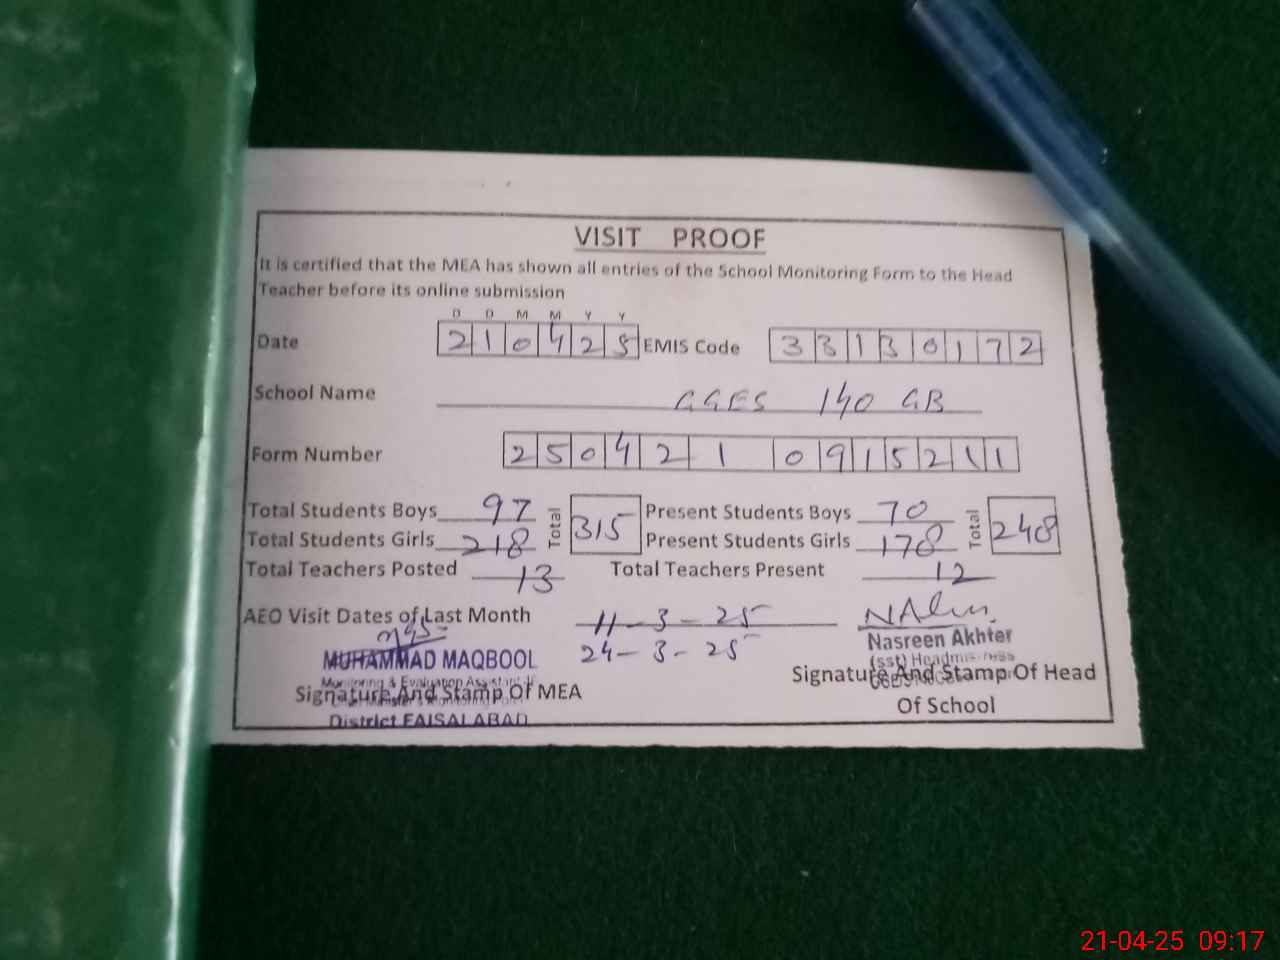 VISIT PROOF
It is certified that the MEA has shown all entries of the School Monitoring Form to the Head
Teacher before its online submission
D D M M Y Y
Date 2 1 0 4 2 5 EMIS Code 3 3 1 3 0 1 7 2
School Name GGES 140 GB
Form Number 2 5 0 4 2 1 0 9 1 5 2 1 1
Total Students Boys 97 Total 315 Present Students Boys 70 Total 248
Total Students Girls 218 Present Students Girls 178
Total Teachers Posted 13 Total Teachers Present 12
AEO Visit Dates of Last Month 11-3-25
24-3-25
MUHAMMAD MAQBOOL
Monitoring & Evaluation Assistant
Signature And Stamp Of MEA
District FAISALABAD
Nasreen Akhter
(sst) Headmistress
Signature And Stamp Of Head
Of School
21-04-25 09:17